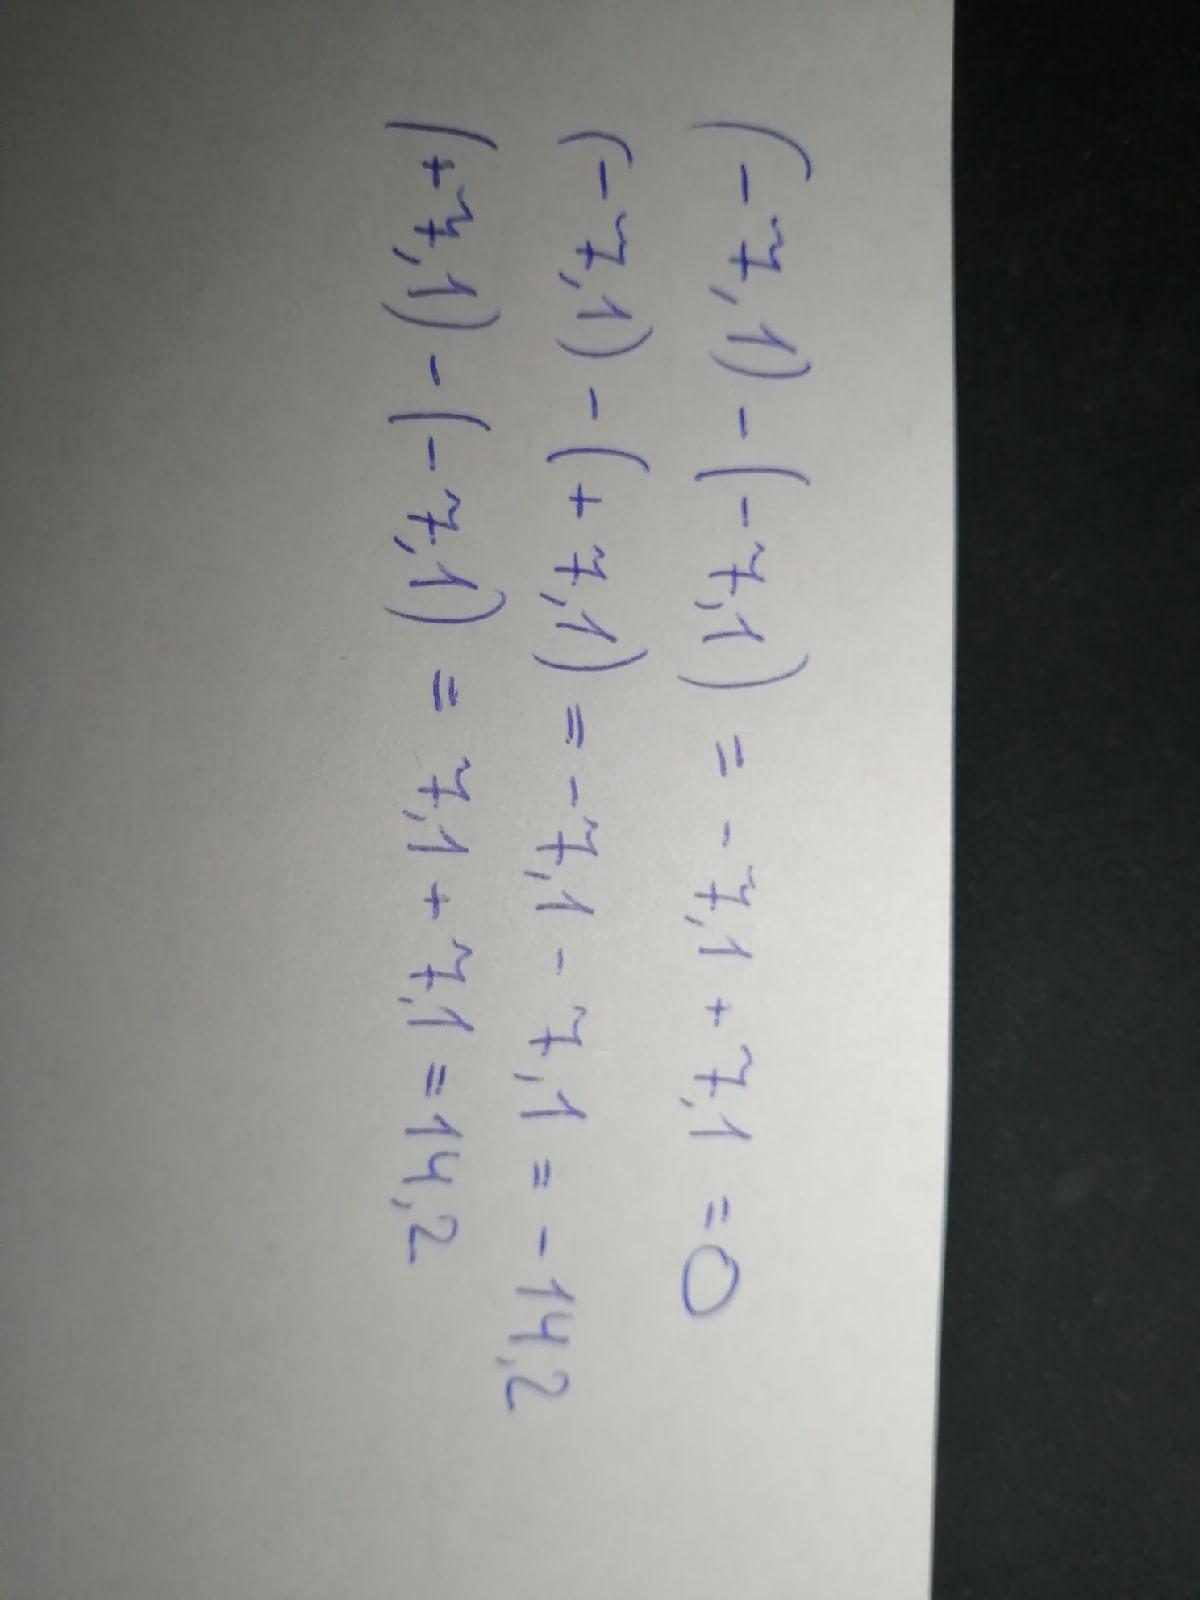 (-7,1) - (-7,1) = -7,1 + 7,1 = 0
(-7,1) - (+7,1) = -7,1 - 7,1 = -14,2
(+7,1) - (-7,1) = 7,1 + 7,1 = 14,2